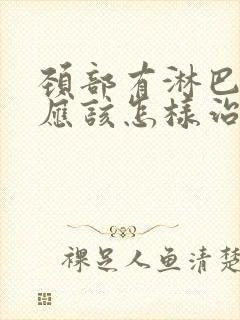 頚部有淋巴
應該怎樣治
裸足人鱼清楚